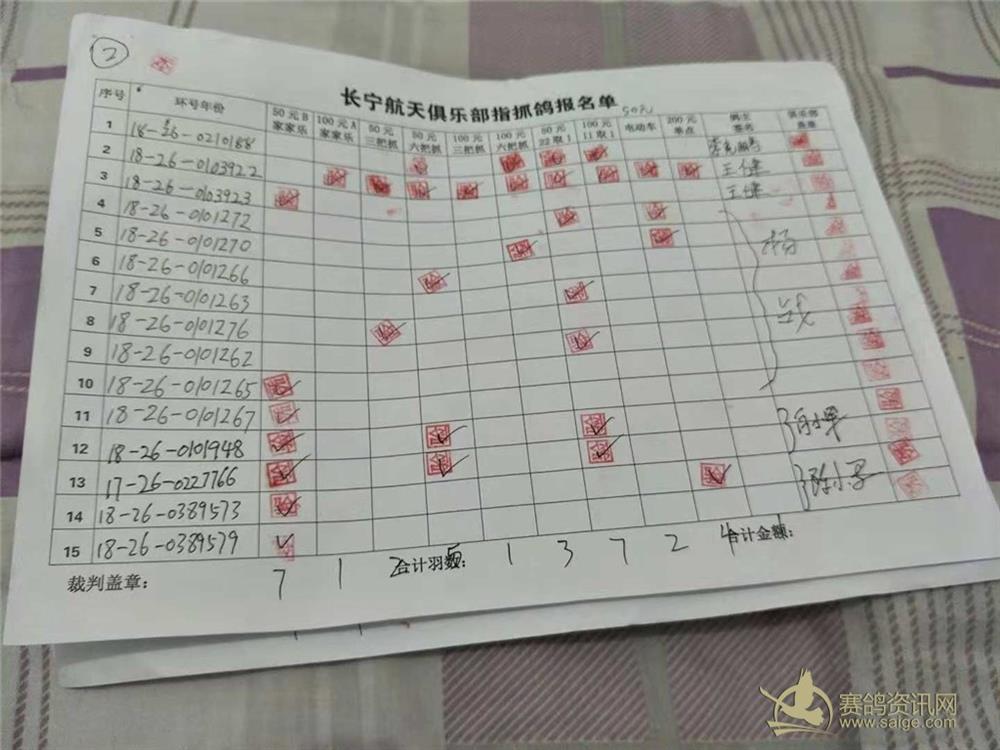 ②
长宁航天俱乐部指抓鸽报名单
50元
序号 环号年份 50元B家家乐 100元A家家乐 50元三把抓 50元六把抓 100元三把抓 100元六把抓 50元22取1 100元11取1 电动车 200元单点 鸽主签名 俱乐部盖章
1 18-26-0210188
2 18-26-0103922 王健
3 18-26-0103923 王健
4 18-26-0101272
5 18-26-0101270 杨
6 18-26-0101266
7 18-26-0101263
8 18-26-0101276
9 18-26-0101262
10 18-26-0101265
11 18-26-0101267
12 18-26-0101948
13 17-26-0227766
14 18-26-0389573
15 18-26-0389579
裁判盖章: 合计羽数: 合计金额:
7 1 2 5 1 3 7 2 4 1
赛鸽资讯网
www.saige.com